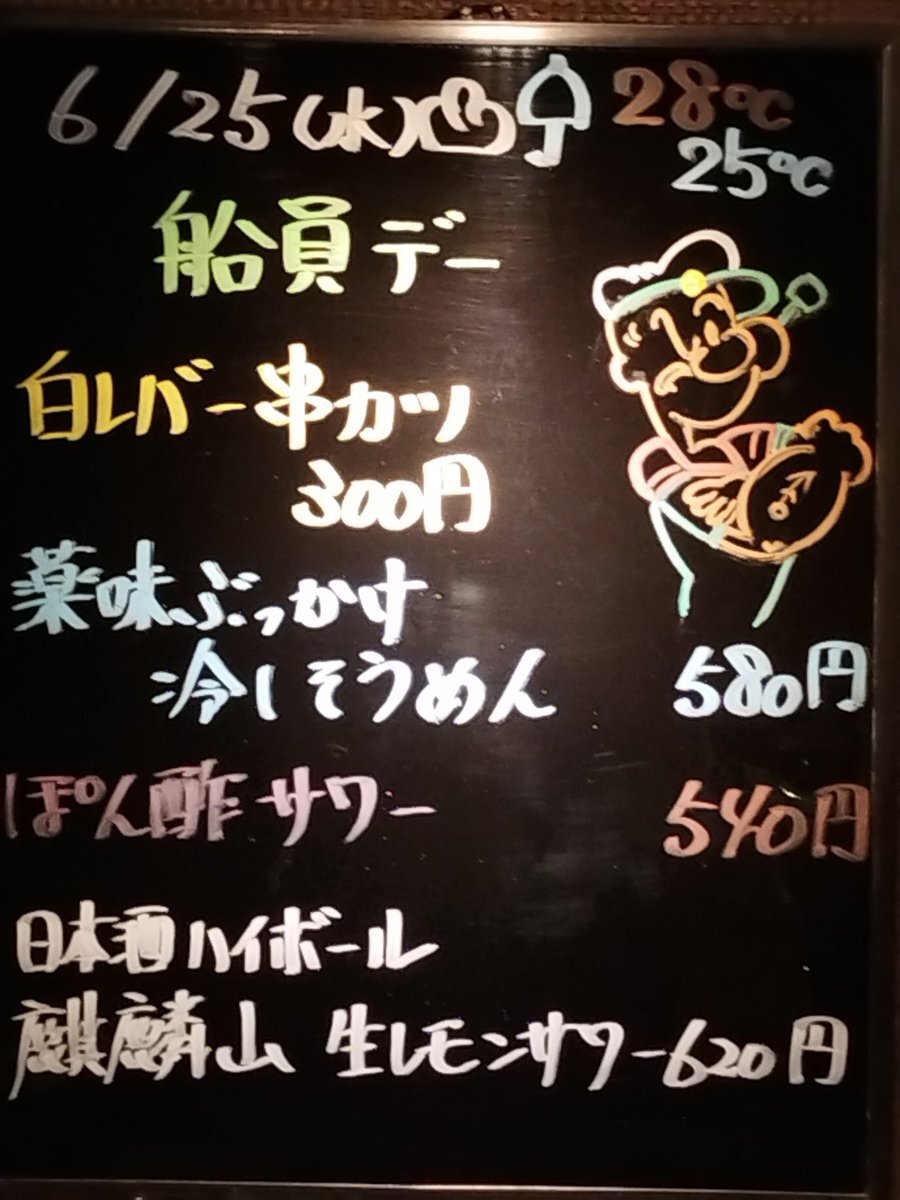 6/25(水) 28℃
25℃
船員デー
白レバー串カツ
300円
薬味ぶっかけ
冷しそうめん 580円
ぽん酢サワー 540円
日本酒ハイボール
麒麟山 生レモンサワー620円